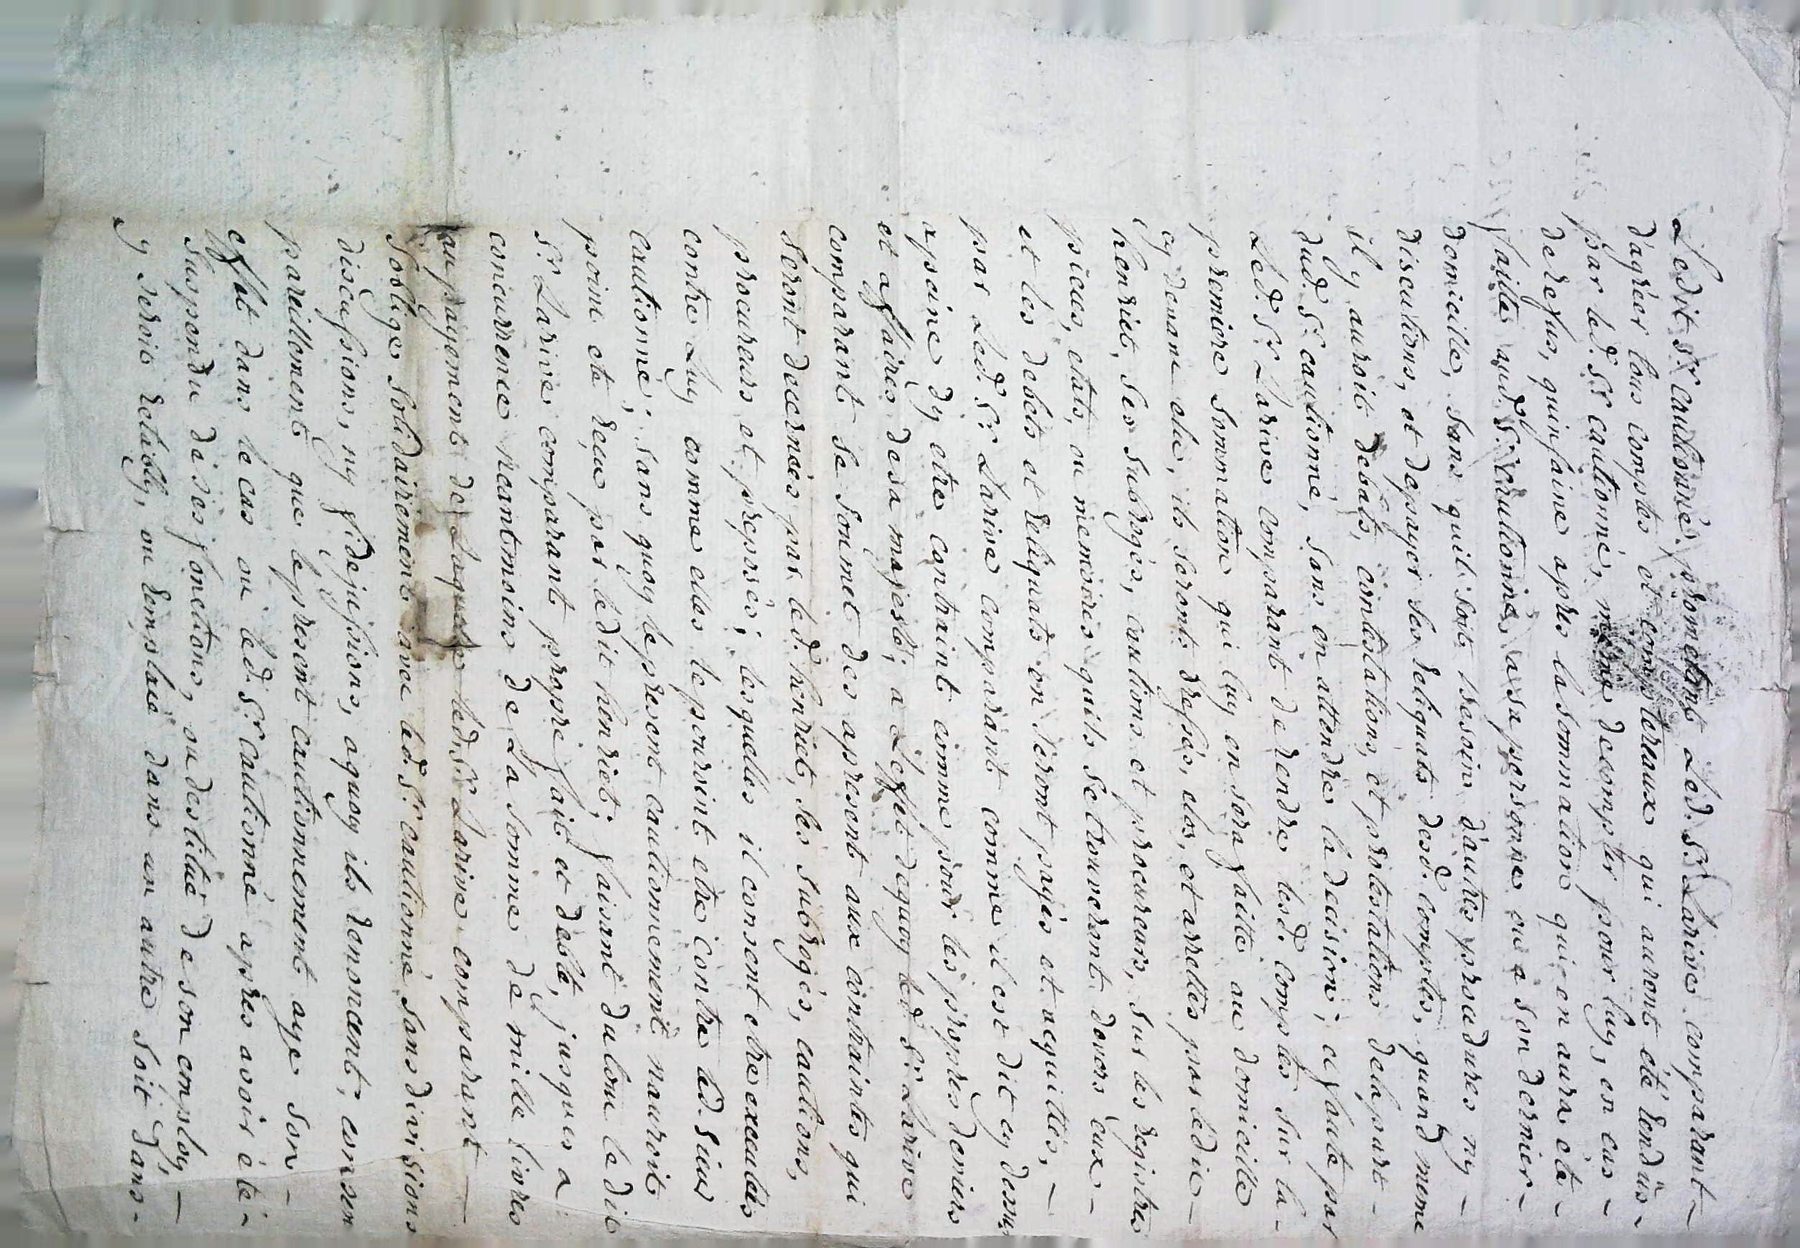 Ledit Sr. cautionné, prometant Led. Sr. Larive comparant
d'agréer tous comptes et comptereaux qui auront été rendûs
par led. Sr. cautionné, même decompter pour luy, en cas
de refus, quinsaine apres la sommation qui en aura eté
faitte aud. Sr. Cautionné, a sa personne ou a son dernier
domicille, sans quil soit besoin d'autres procedures ny
discutions, et de payer les Reliquats desd. comptes, quand meme
il y auroit debats, contestations, et protestations de la part
dud. Sr. cautionné, sans en attendre la decision; a faute par
Led. Sr. Larive comparant de rendre lesd. comptes sur la
premiere sommation qui luy en sera faitte au domicille
cy devant elû, ils seront dressés, clos, et arrettés par ledit
henriet, ses subrogés, cautions et procureurs, sur les registres
pieces, etats, ou memoires quils se trouveront devers eux
et les debets et Reliquats en seront payés et acquittés,
par Led. Sr. Larive comparant comme il est dit cy dessus
a peine d'y etre contraint comme pour les propres deniers
et affaires de sa majesté; a L'effet dequoy led. Sr. Larive
comparant se soumet des apresent aux contraintes qui
seront decernées par led. henriet, ses subrogés, cautions,
procureurs et preposés; lesquelles il consent etre executés
contre Luy comme elles le pouroint etre contre led. Sieur
cautionné; sans quoy le present cautionnement n'auroit
point eté reçu par ledit henriet; faisant du tout le dit
Sr. Larive comparant propre fait et debte, jusques a
concurrence neantmoins de La somme de mille livres
au payement de Laquelle led. Sr. Larive comparant
s'oblige solidairement avec led. Sr. cautionné sans divisions
discussions, ny fidejussions, aquoy ils renoncent, consen
pareillement que le present cautionnement aye son
effet dans le cas ou led. Sr. cautionné apres avoir été
suspendu de ses fonctions, ou destitué de son employ,
y seroit retably, ou remplacé dans un autre soit dans